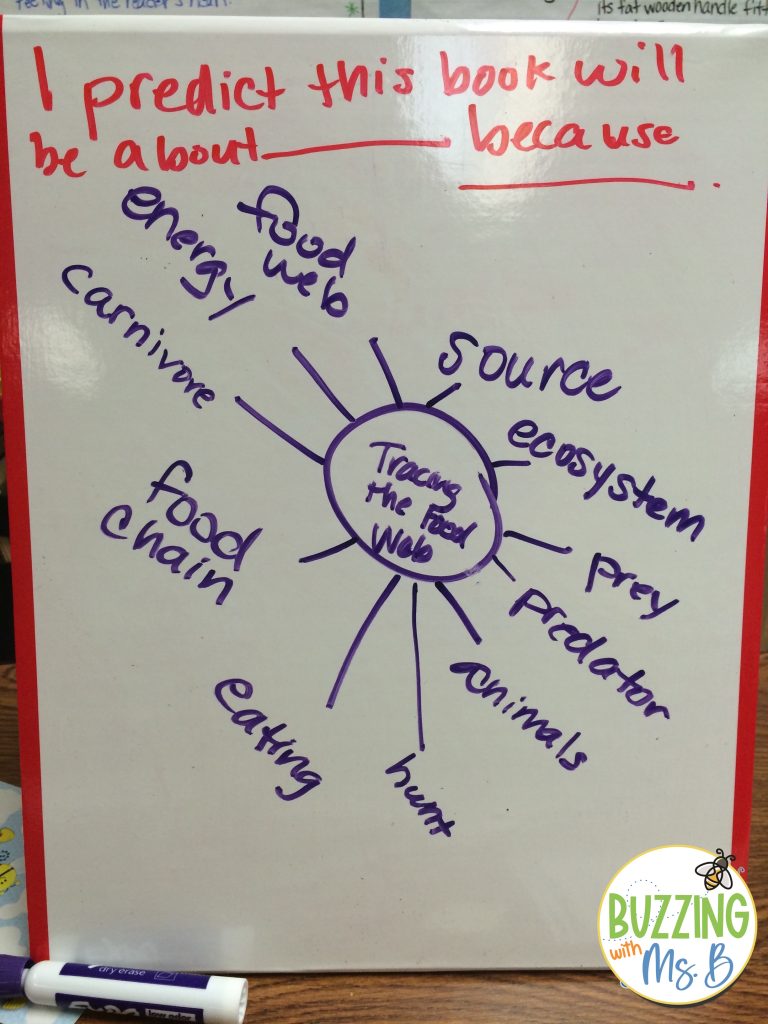 feeling in the reader's
its fat wooden handle fit
I predict this book will
be about________ because
________.
food
web
energy
carnivore
source
ecosystem
prey
predator
animals
hunt
eating
food
chain
Tracing
the Food
Web
dry erase
low odor
BUZZING
with
Ms. B